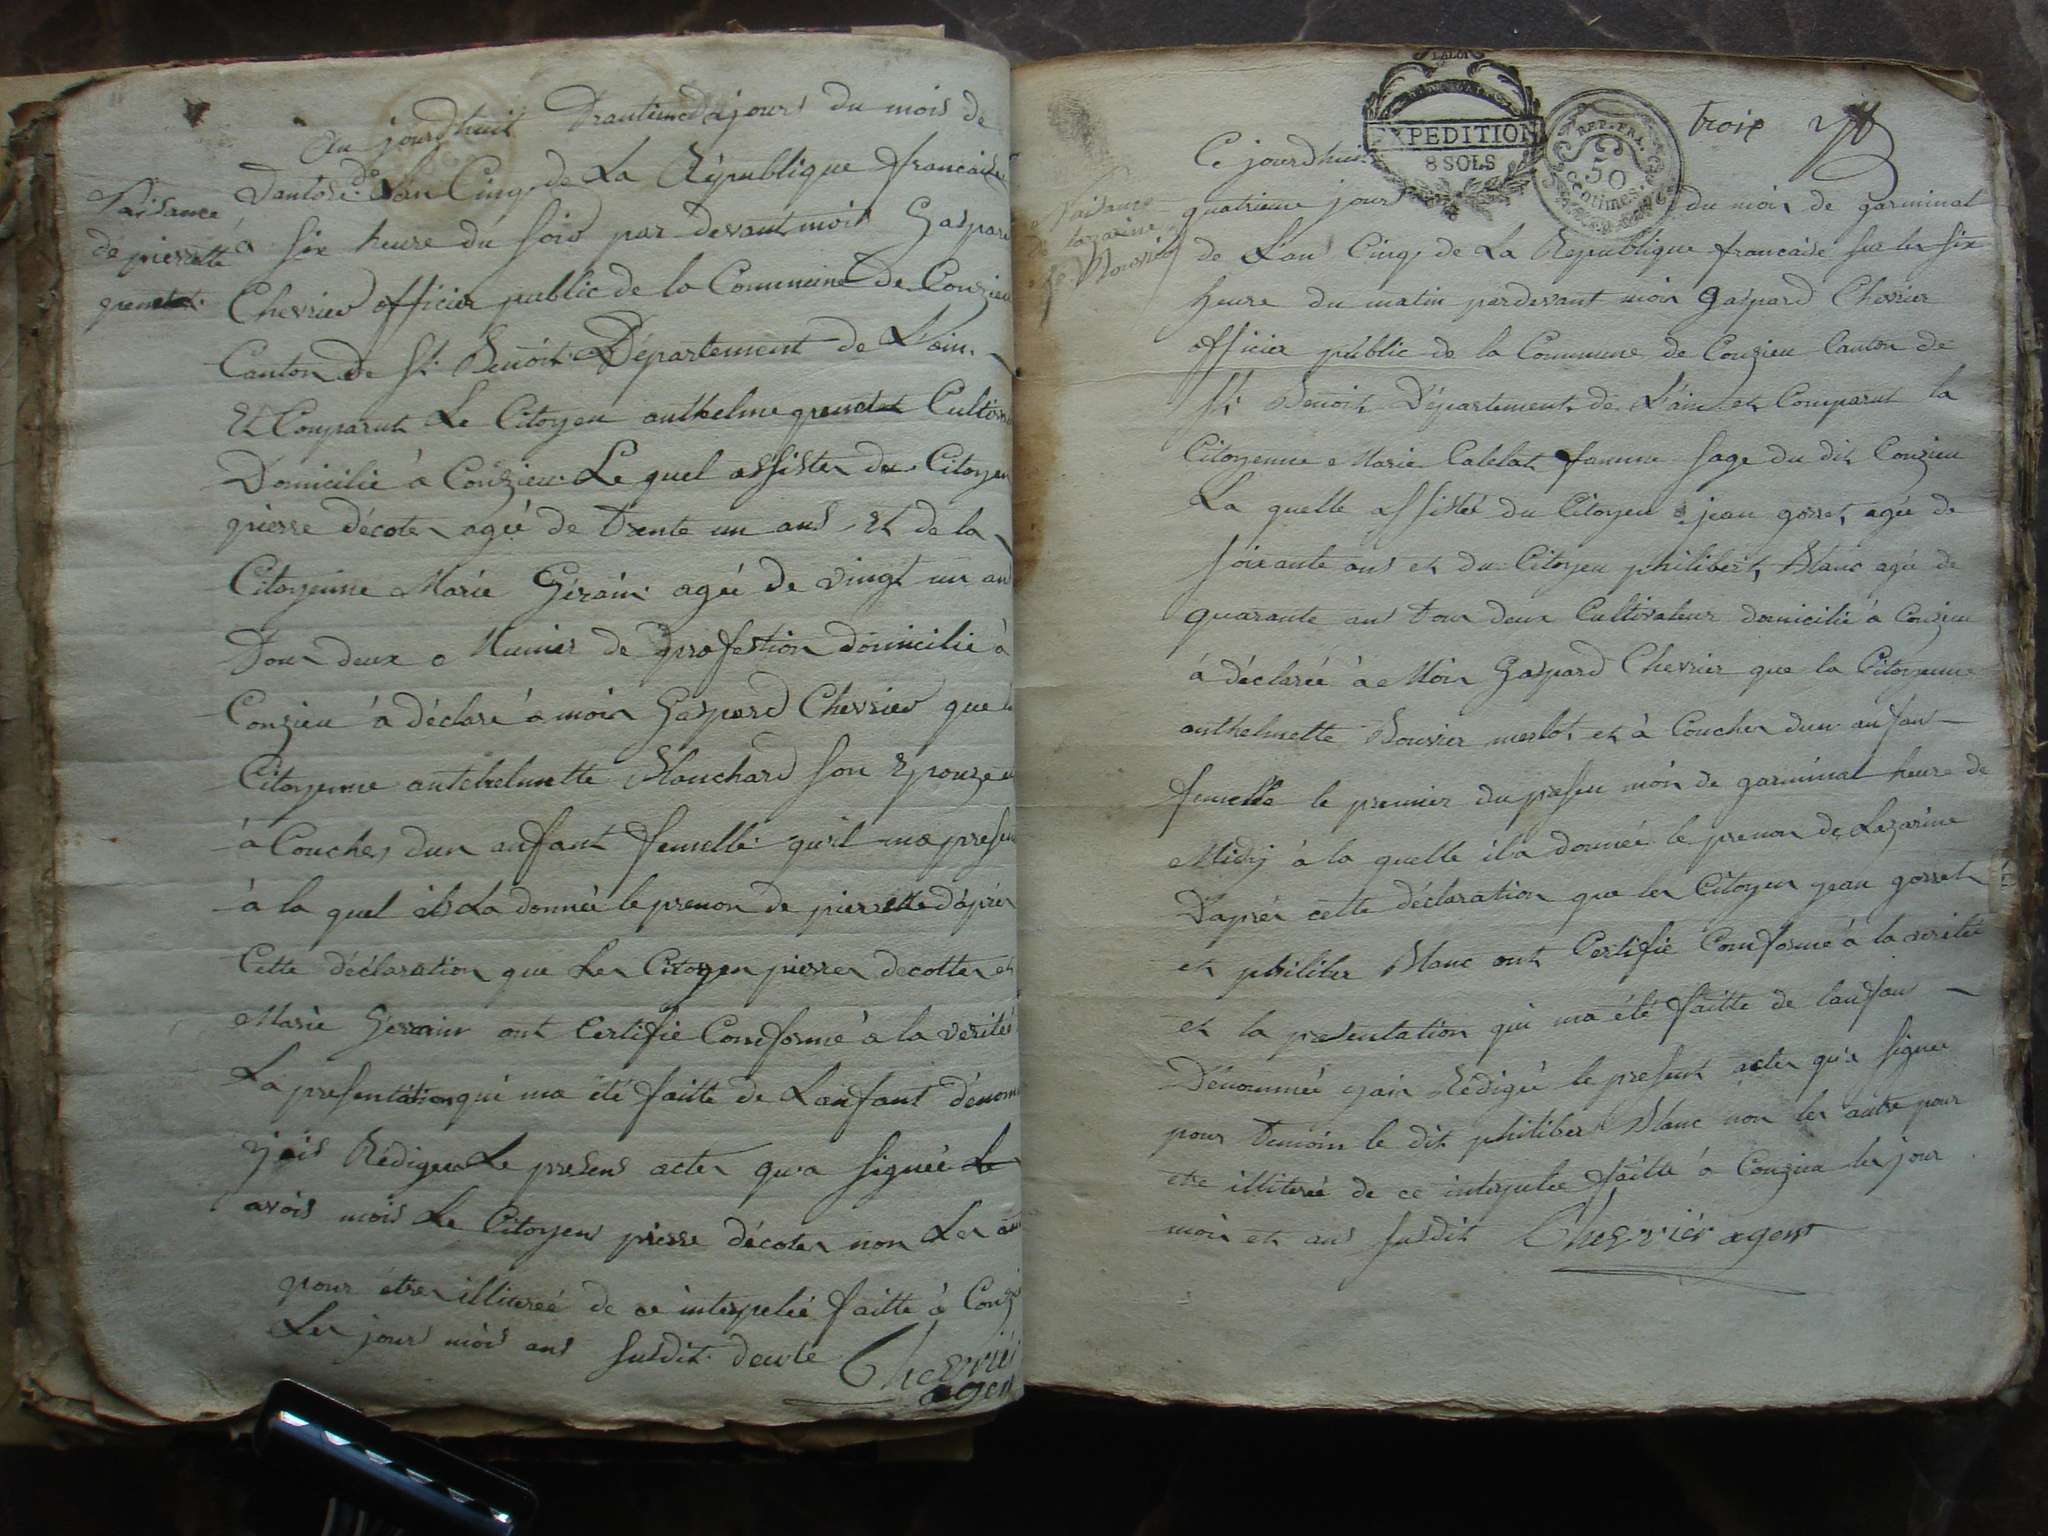 Au jourdhuit trantiemed jours du mois de
Naisance
de pierrette
grendet
Vantose de Lan Cinq de La République francaisse
a six heure du soir par devant mois Gaspard
Chevrier officier public de la Commune de Conzieu
Canton de St. Benoit Département de L'ain.
Et Comparut Le Citoyen anthelme Cultiva
Domicilié à Conzieu Le quel assister du Citoyen
pierre décoter agée de trente un ans Et de la
Citoyenne Marie Gérain agée de vingt un an
Tour deux Munier de profestion domicilié à
Conzieu à déclaré à moin Gaspard Chevrier que
Citoyenne antchelmette Blanchard son Epouze
à Coucher dun anfant femelle quil ma presen
à la quel donnée le prenon de pierrette d'aprér
Cette déclaration que Ler Citoyen pierrer decotter et
Marie Gerain ont Certifié Comforme à la verités
La presentation qui ma été faitte de Lanfant dénom
jais Rédigeu Le presens acter qu'a signée Le
avois mois Le Citoyens pierre décoter non Ler au
pour étrer illitereé de ce interpelié faitte à Conzi
Ler jours mois ans susdit
Chevrier
agen
troix
EXPEDITION
8 SOLS
REP. FRA.
50
Centimes.
Ce jourdhuit
Naisance
de lazarine
Bouvier
quatrieme jours du moin de garminal
de L'ans Cinq de La Republique francaise sur les six
heure du matin pardevant moin Gaspard Chevrier
officier public de la Commune de Conzieu Canton de
St. Benoit Département de L'ain et Comparut la
Citoyenne Marie Calelat famme sage du dit Conzieu
La quelle assisteé du Citoyen jean gorret agée de
soixante ans et du Citoyen philibert Blanc agée de
quarante an tour deux Cultivateur domicilié à Conzieu
à déclarée à Moin Gaspard Chevrier que la Citoyenne
anthelmette Bouvier merlot et à Coucher dun anfan
femelle le premier du presen moin de garminal heure de
Midy à la quelle il a donnée le prenon de Lazarine
D'aprér cette déclaration que ler Citoyen jean gorret
et philiber Blanc ont Certifié Comforme à la verité
et la presentation qui ma été faitte de lanfan
Dénommée jain Rédigée le present acter qu'a signee
pour temoin le dit philiber Blanc non ler autre pour
etre illitereé de ce interpelee faitte à Conzieu ler jour
moin et ans susdit Chevrier agent